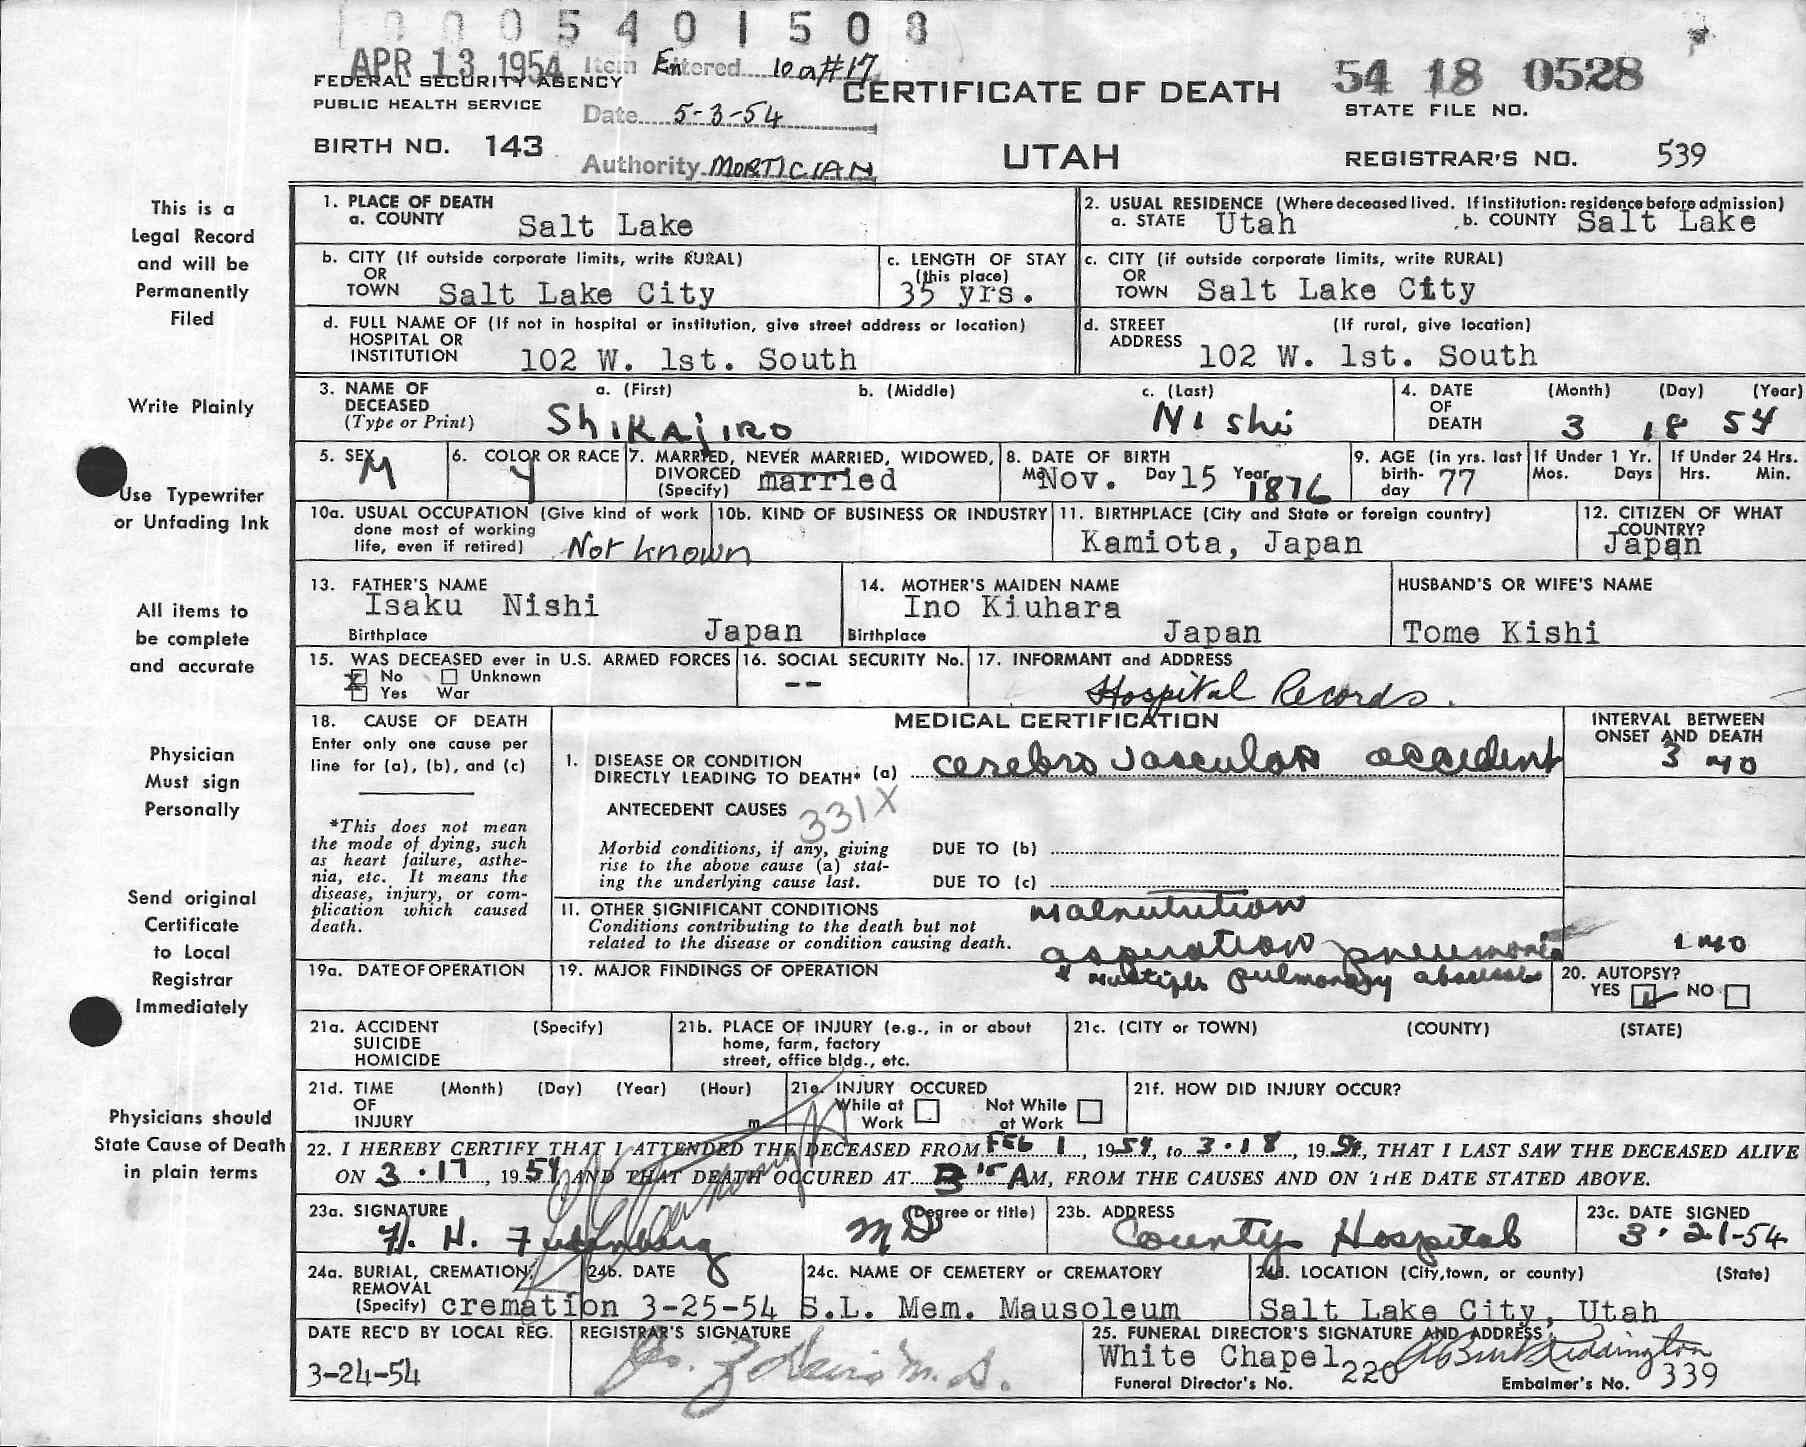 0005401508
APR 13 1954 Item Entered 10a #17
FEDERAL SECURITY AGENCY
PUBLIC HEALTH SERVICE
Date 5-3-54
CERTIFICATE OF DEATH
54 18 0528
STATE FILE NO.
BIRTH NO. 143
Authority MORTICIAN
UTAH
REGISTRAR'S NO. 539
This is a
Legal Record
and will be
Permanently
Filed
Write Plainly
Use Typewriter
or Unfading Ink
All items to
be complete
and accurate
Physician
Must sign
Personally
Send original
Certificate
to Local
Registrar
Immediately
Physicians should
State Cause of Death
in plain terms
1. PLACE OF DEATH
a. COUNTY Salt Lake
2. USUAL RESIDENCE (Where deceased lived. If institution: residence before admission)
a. STATE Utah b. COUNTY Salt Lake
b. CITY (If outside corporate limits, write RURAL)
OR
TOWN Salt Lake City
c. LENGTH OF STAY
(this place)
35 yrs.
c. CITY (if outside corporate limits, write RURAL)
OR
TOWN Salt Lake City
d. FULL NAME OF (If not in hospital or institution, give street address or location)
HOSPITAL OR
INSTITUTION 102 W. 1st. South
d. STREET (If rural, give location)
ADDRESS 102 W. 1st. South
3. NAME OF a. (First) b. (Middle) c. (Last)
DECEASED
(Type or Print) Shikajiro Nishi
4. DATE (Month) (Day) (Year)
OF
DEATH 3 18 54
5. SEX M
6. COLOR OR RACE Y
7. MARRIED, NEVER MARRIED, WIDOWED,
DIVORCED
(Specify) married
8. DATE OF BIRTH
Mo Nov. Day 15 Year 1876
9. AGE (in yrs. last
birth-
day 77
If Under 1 Yr.
Mos. Days
If Under 24 Hrs.
Hrs. Min.
10a. USUAL OCCUPATION (Give kind of work
done most of working
life, even if retired) Not known
10b. KIND OF BUSINESS OR INDUSTRY
11. BIRTHPLACE (City and State or foreign country)
Kamiota, Japan
12. CITIZEN OF WHAT
COUNTRY?
Japan
13. FATHER'S NAME
Isaku Nishi
Birthplace Japan
14. MOTHER'S MAIDEN NAME
Ino Kiuhara
Birthplace Japan
HUSBAND'S OR WIFE'S NAME
Tome Kishi
15. WAS DECEASED ever in U.S. ARMED FORCES
X No Unknown
Yes War
16. SOCIAL SECURITY No.
--
17. INFORMANT and ADDRESS
Hospital Records.
18. CAUSE OF DEATH
Enter only one cause per
line for (a), (b), and (c)
*This does not mean
the mode of dying, such
as heart failure, asthe-
nia, etc. It means the
disease, injury, or com-
plication which caused
death.
MEDICAL CERTIFICATION
INTERVAL BETWEEN
ONSET AND DEATH
1. DISEASE OR CONDITION
DIRECTLY LEADING TO DEATH* (a) cerebro vascular accident 3 mo
ANTECEDENT CAUSES 331X
Morbid conditions, if any, giving
rise to the above cause (a) stat-
ing the underlying cause last.
DUE TO (b)
DUE TO (c)
11. OTHER SIGNIFICANT CONDITIONS
Conditions contributing to the death but not
related to the disease or condition causing death.
malnutrition
aspiration pneumonia 1 mo
& multiple pulmonary abscesses
19a. DATE OF OPERATION
19. MAJOR FINDINGS OF OPERATION
20. AUTOPSY?
YES NO
21a. ACCIDENT (Specify)
SUICIDE
HOMICIDE
21b. PLACE OF INJURY (e.g., in or about
home, farm, factory
street, office bldg., etc.
21c. (CITY or TOWN) (COUNTY) (STATE)
21d. TIME (Month) (Day) (Year) (Hour)
OF
INJURY m
21e. INJURY OCCURED
While at Work
Not While at Work
21f. HOW DID INJURY OCCUR?
22. I HEREBY CERTIFY THAT I ATTENDED THE DECEASED FROM FEB 1, 1954, to 3.18, 1954, THAT I LAST SAW THE DECEASED ALIVE
ON 3.17, 1954, AND THAT DEATH OCCURED AT 3 15 AM, FROM THE CAUSES AND ON THE DATE STATED ABOVE.
23a. SIGNATURE (Degree or title)
H. H. MD
23b. ADDRESS
County Hospital
23c. DATE SIGNED
3.21-54
24a. BURIAL, CREMATION,
REMOVAL
(Specify) cremation
24b. DATE
3-25-54
24c. NAME OF CEMETERY or CREMATORY
S.L. Mem. Mausoleum
24d. LOCATION (City, town, or county) (State)
Salt Lake City, Utah
DATE REC'D BY LOCAL REG.
3-24-54
REGISTRAR'S SIGNATURE
M.D.
25. FUNERAL DIRECTOR'S SIGNATURE AND ADDRESS
White Chapel
Funeral Director's No. 220
Embalmer's No. 339